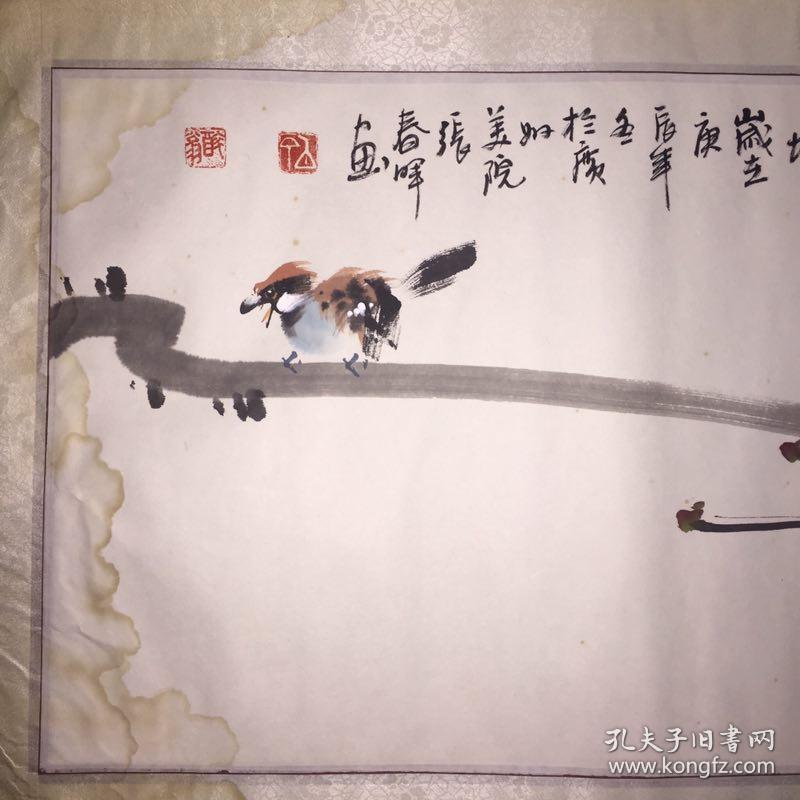 歲在
庚
辰年
冬
於廣
州
美院
張
春暉
画
孔夫子旧书网
www.kongfz.com